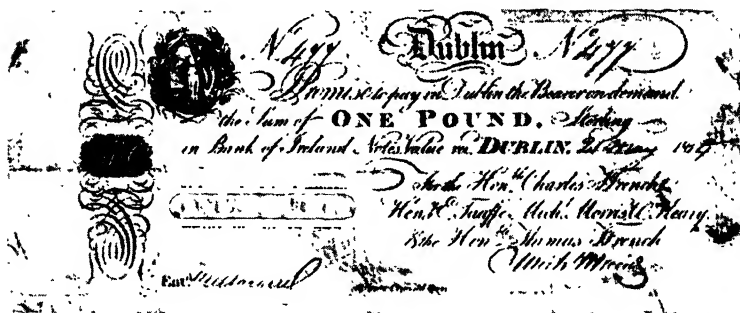 No. 477 Dublin No. 477
I Promise to pay in Dublin the Bearer on demand
the Sum of ONE POUND. Sterling
in Bank of Ireland Notes Value rd. DUBLIN. 18
For the Honble. Charles Ffrench
Honble. C. Taaffe Archd. Morris C. Keary
& the Honble. Thomas Ffrench
Morris
Entd.